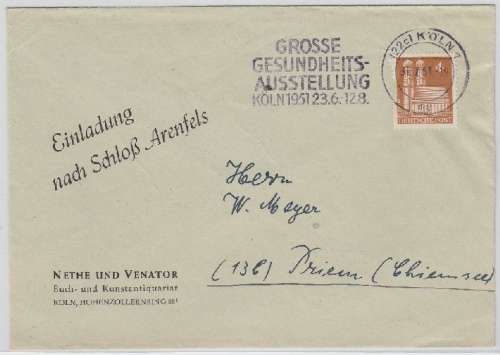 GROSSE
GESUNDHEITS-
AUSSTELLUNG
KÖLN 1951 23.6.-12.8.
(22c) KÖLN 1
4
DEUTSCHE POST
Einladung
nach Schloß Arenfels
Herrn
W. Meyer
(13b) Prien (Chiemsee)
NETHE UND VENATOR
Buch- und Kunstantiquariat
KÖLN, HOHENZOLLERNRING